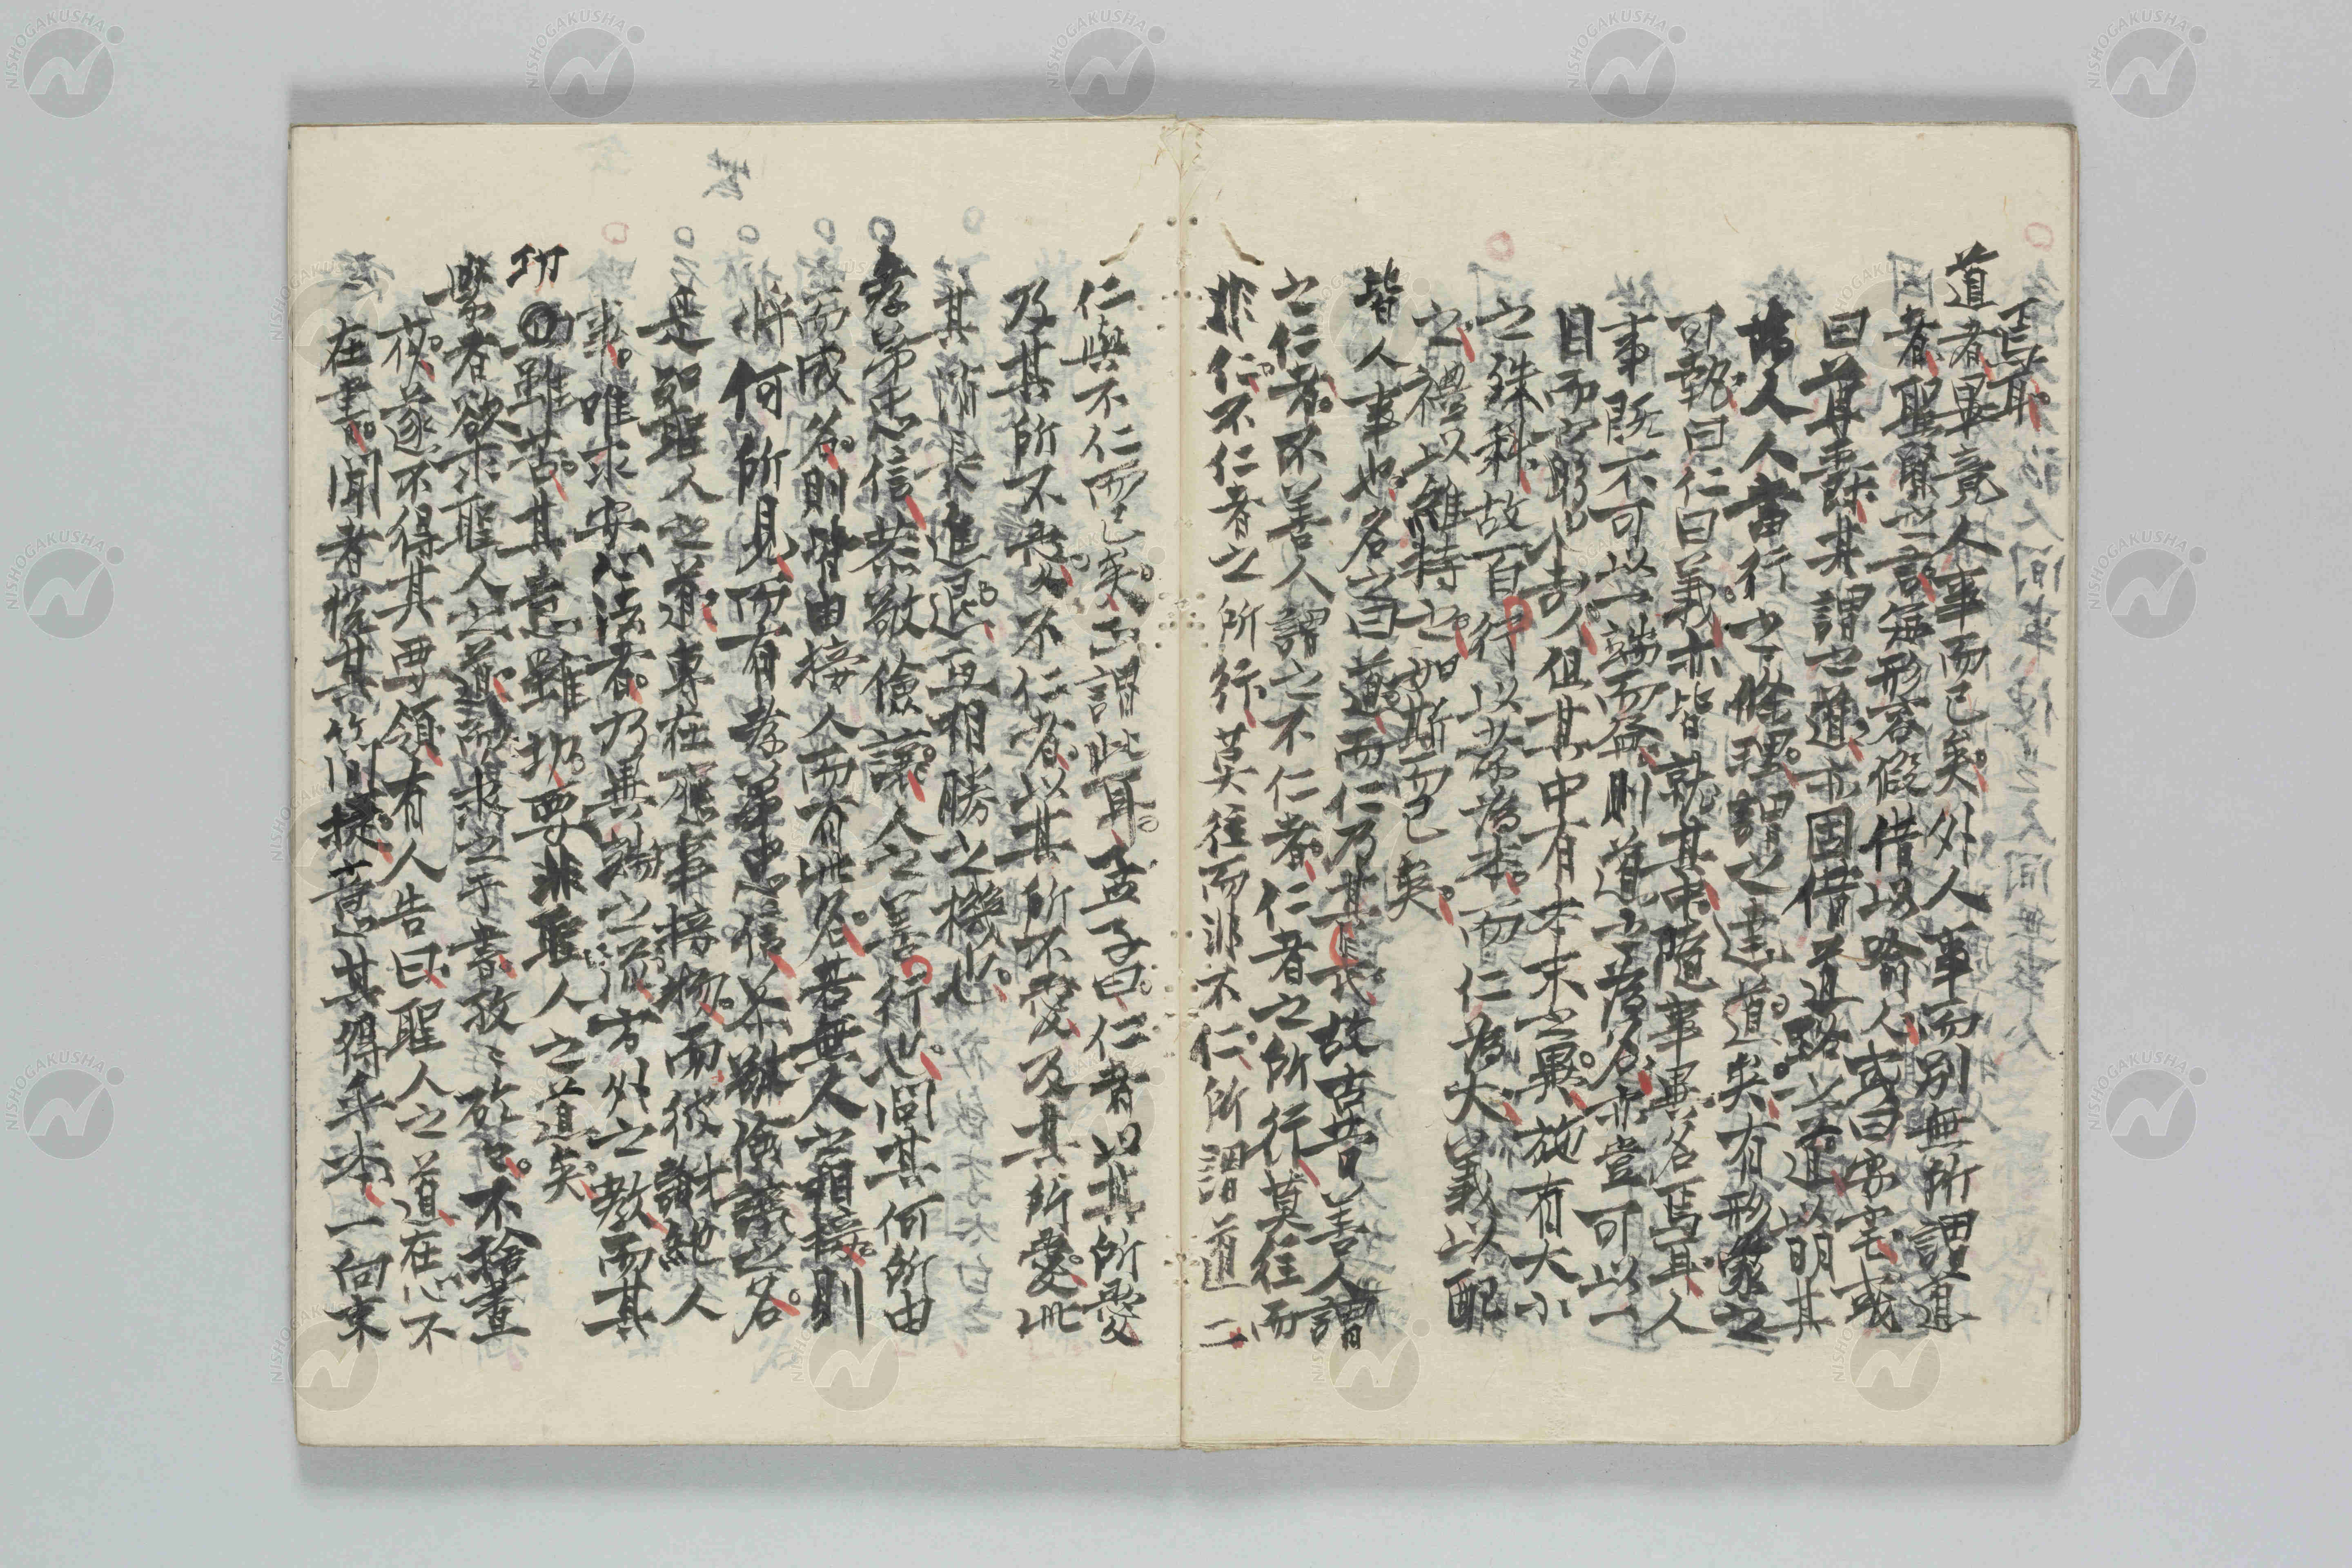 焉耳
道者畢竟人事而已矣外人事而別無所謂道
者聖賢之訓無形容假借以喻人或曰安宅或
曰尊爵其謂之道亦因借道路之道以明其
為人人當行之條理謂之達道矣有形象之
可執曰仁曰義亦皆就其中隨事異名焉耳人
事既不可以一端而盡則道之為名亦豈可以一
目而窮乎但其中有本末之異施有大小
之殊科故百行以孝為本而仁為大義以配
之禮以維持之如斯而已矣
皆人事也名之曰道而仁乃其長故古昔善人謂
之仁者不善人謂之不仁者仁者之所行莫往而
非仁不仁者之所行莫往而非不仁所謂道二
仁與不仁而已矣正謂此耳孟子曰仁者以其所愛
及其所不愛不仁者以其所不愛及其所愛此
其消長進退互相勝之機也
孝弟忠信恭敬儉讓人之善行也問其何所由
而成名則皆由接人而有此名若無人之相接則
將何所見而有孝弟忠信恭敬儉讓之名
是知聖人之道專在應事接物而彼謝絕人
事唯求安心法者乃異端之流方外之教而其
功雖苦其意雖切要非聖人之道矣
學者欲求聖人之道而求之乎書孜々矻々不捨晝
夜遂不得其要領有人告曰聖人之道在心不
在書聞者悅其簡捷喜其得乎本一向求